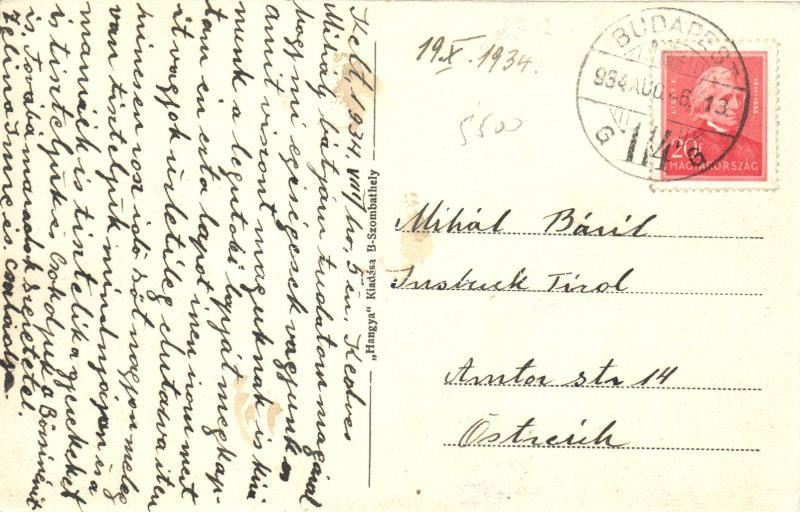 Kelt 1934. VIII/ho, 5 én. Kedves
Mihály bátyám tudatom magával
hogy mi egéségesek vagyunk
amit viszont maguknak is kivá
munk a legutobi lapját megkap-
tam én ezta lapot inen irom mert
itt vagyok üzletileg elutazva iten
nincsen rosz idö söt nagyon meleg
van tiszteljük mindnyájan is a
mamáék is tisztelik a gyerekeket
is tiszteljük is csokoljuk a
is. Továba maradok szeretetel
Zelina Imre és családja.
„Hangya" Kiadása B-Szombathely
19.X.1934.
5500
BUDAPEST
934 AUG -6. 13
114
G B
20f
MAGYARORSZÁG
Mihál Báril
Insbruck Tirol
Amtor str 14
Östreich